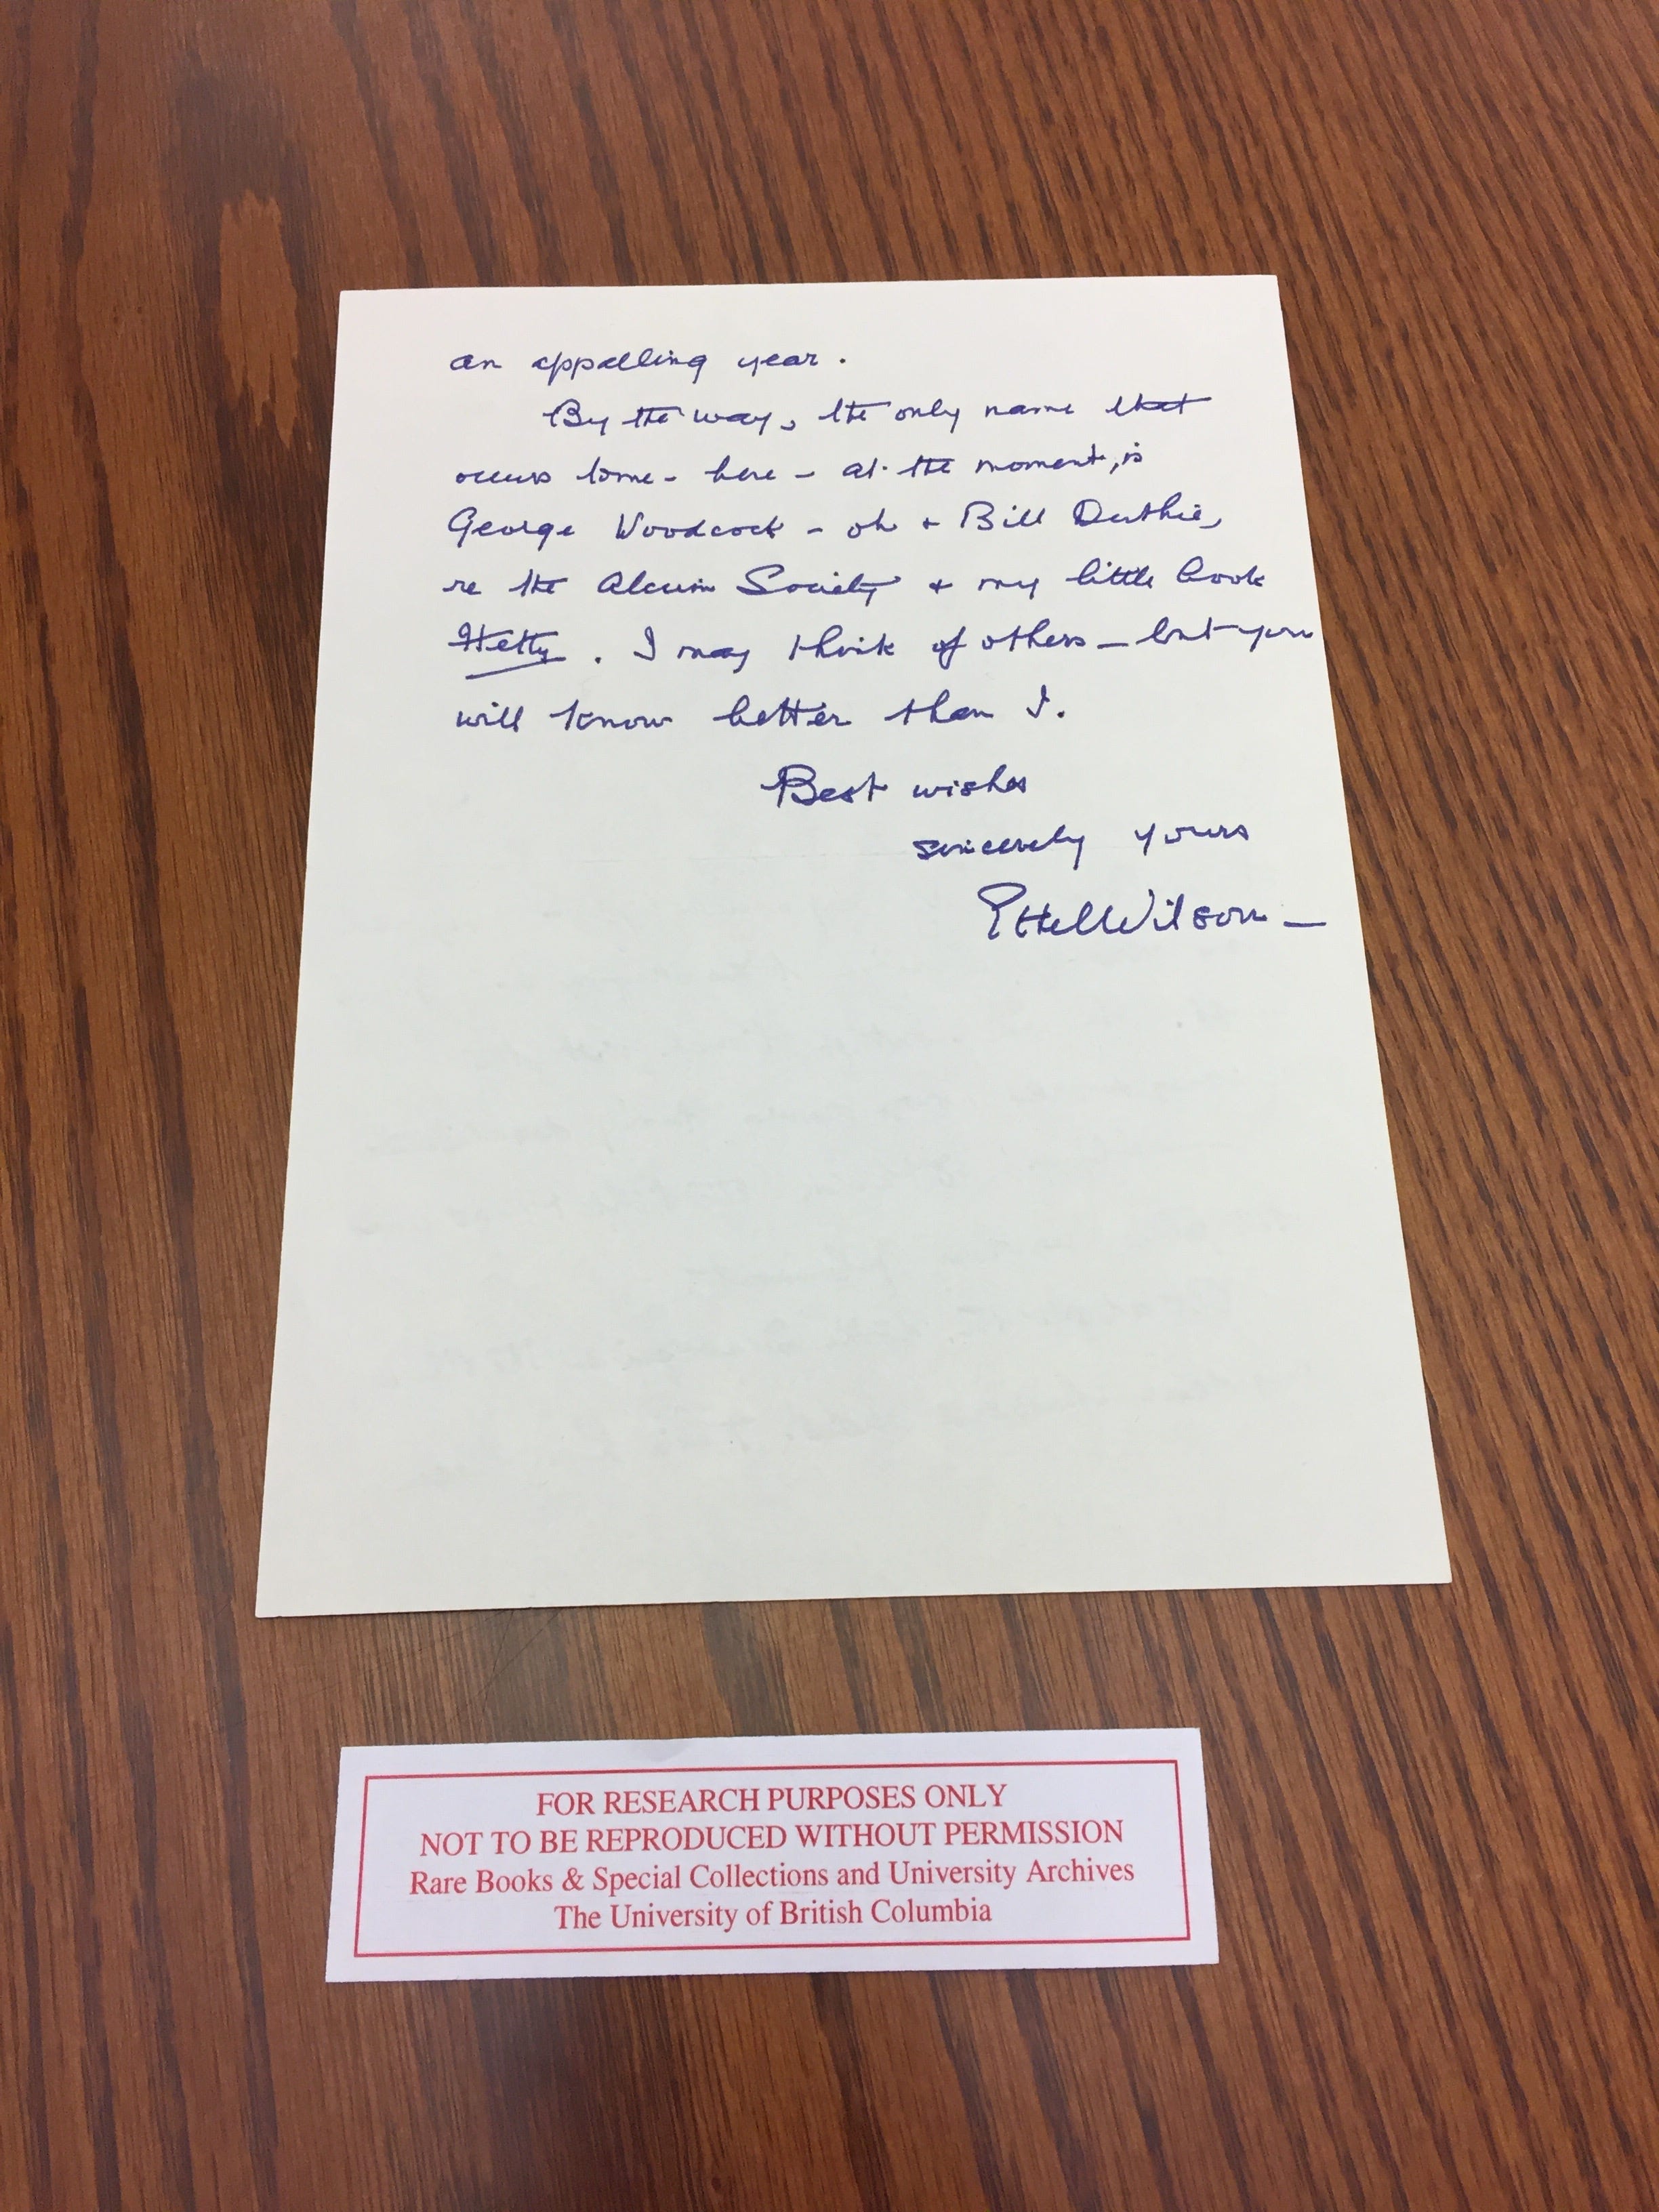 an appalling year.
By the way, the only name that
occurs to me - here - at the moment, is
George Woodcock - oh + Bill Duthie,
re the Alcuin Society + my little book
Hetty. I may think of others - but you
will know better than I.
Best wishes
sincerely yours
Ethel Wilson -
FOR RESEARCH PURPOSES ONLY
NOT TO BE REPRODUCED WITHOUT PERMISSION
Rare Books & Special Collections and University Archives
The University of British Columbia